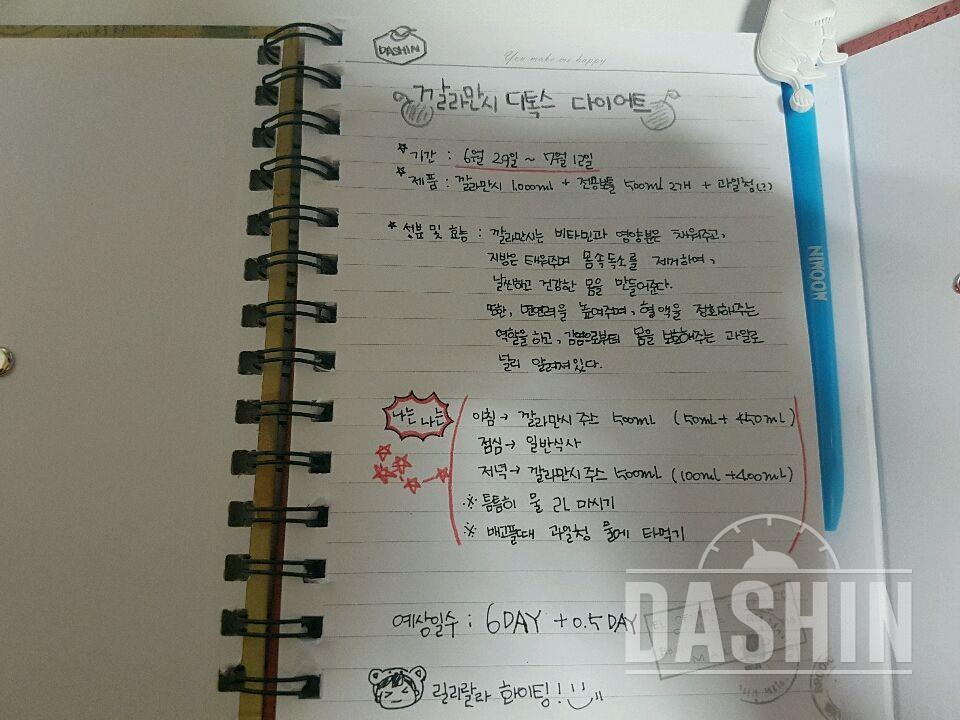 DASHIN
You make me happy
깔라만시 디톡스 다이어트
* 기간 : 6월 29일 ~ 7월 12일
* 제품 : 깔라만시 1000ml + 전용보틀 500ml 2개 + 과일청(?)
* 성분 및 효능 : 깔라만시는 비타민과 영양분은 채워주고,
지방은 태워주며 몸속독소를 제거하여,
날씬하고 건강한 몸을 만들어준다.
또한, 면역력을 높여주며, 혈액을 정화해주는
역할을 하고, 감염으로부터 몸을 보호해주는 과일로
널리 알려져있다.
나는 나는
아침 → 깔라만시 주스 500ml (50ml + 450ml)
점심 → 일반식사
저녁 → 깔라만시 주스 500ml (100ml + 400ml)
※ 틈틈히 물 2L 마시기
※ 배고플때 과일청 물에 타먹기
예상일수 : 6DAY + 0.5DAY
릴리랄라 화이팅!
NIKOON
DASHIN